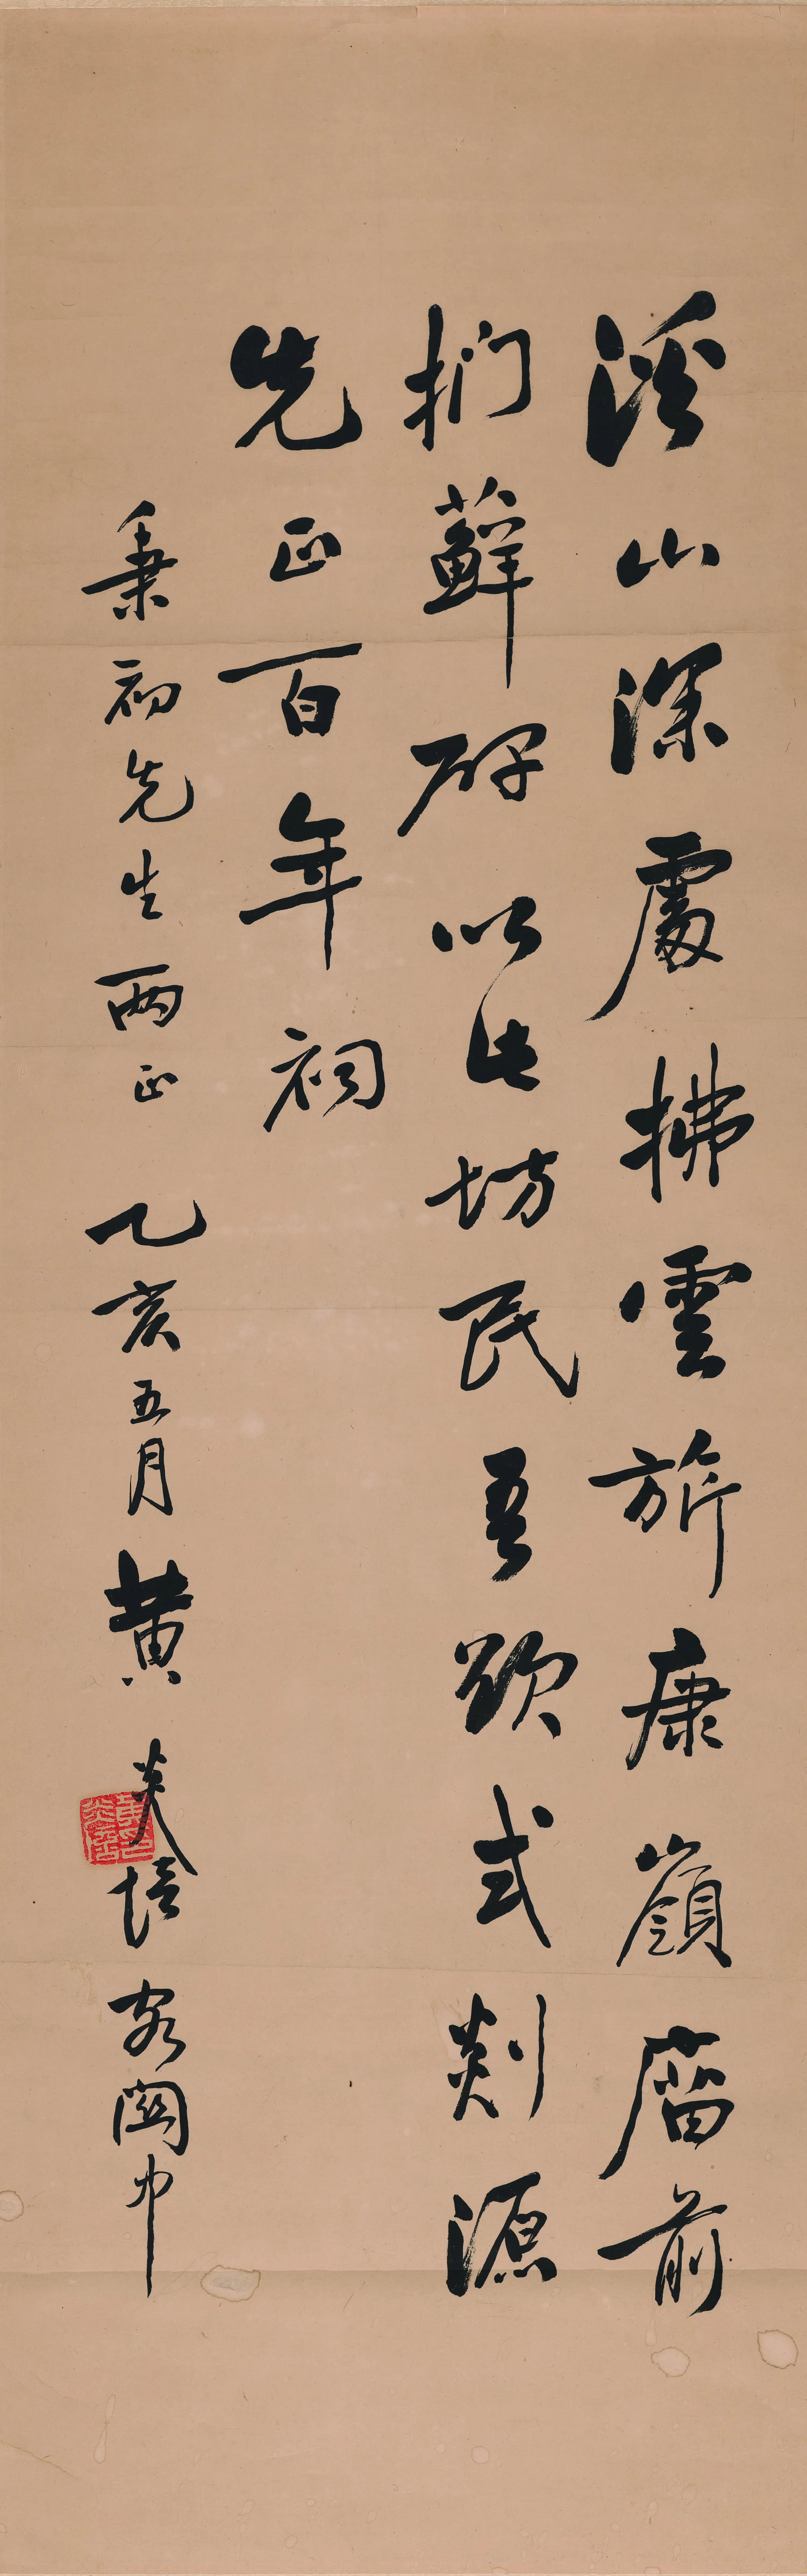 溪山深處拂雲旂康嶺廟前
捫蘚碑以此坊民吾欲式剡源
先正百年祠
秉初先生兩正 乙亥五月 黃炎培 客關中